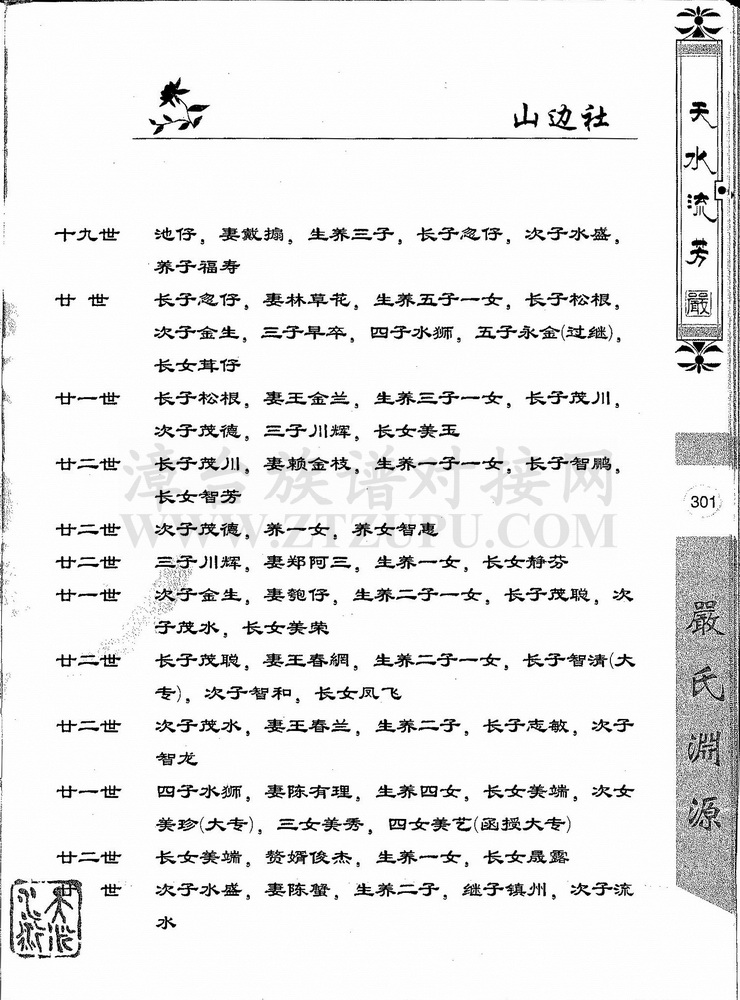 山边社
十九世 池仔，妻戴搧，生养三子，长子忽仔，次子水盛，
养子福寿
廿世 长子忽仔，妻林草花，生养五子一女，长子松根，
次子金生，三子早卒，四子水狮，五子永金(过继)，
长女茸仔
廿一世 长子松根，妻王金兰，生养三子一女，长子茂川，
次子茂德，三子川辉，长女美玉
廿二世 长子茂川，妻赖金枝，生养一子一女，长子智鹏，
长女智芳
廿二世 次子茂德，养一女，养女智惠
廿二世 三子川辉，妻郑阿三，生养一女，长女静芬
廿一世 次子金生，妻匏仔，生养二子一女，长子茂聪，次
子茂水，长女美荣
廿二世 长子茂聪，妻王春網，生养二子一女，长子智清(大
专)，次子智和，长女凤飞
廿二世 次子茂水，妻王春兰，生养二子，长子志敏，次子
智龙
廿一世 四子水狮，妻陈有理，生养四女，长女美端，次女
美珍(大专)，三女美秀，四女美艺(函授大专)
廿二世 长女美端，赘婿俊杰，生养一女，长女晟露
世 次子水盛，妻陈蟹，生养二子，继子镇州，次子流
水
天水流芳
嚴
301
嚴氏淵源
漳台族谱对接网
WWW.ZTZUPU.COM